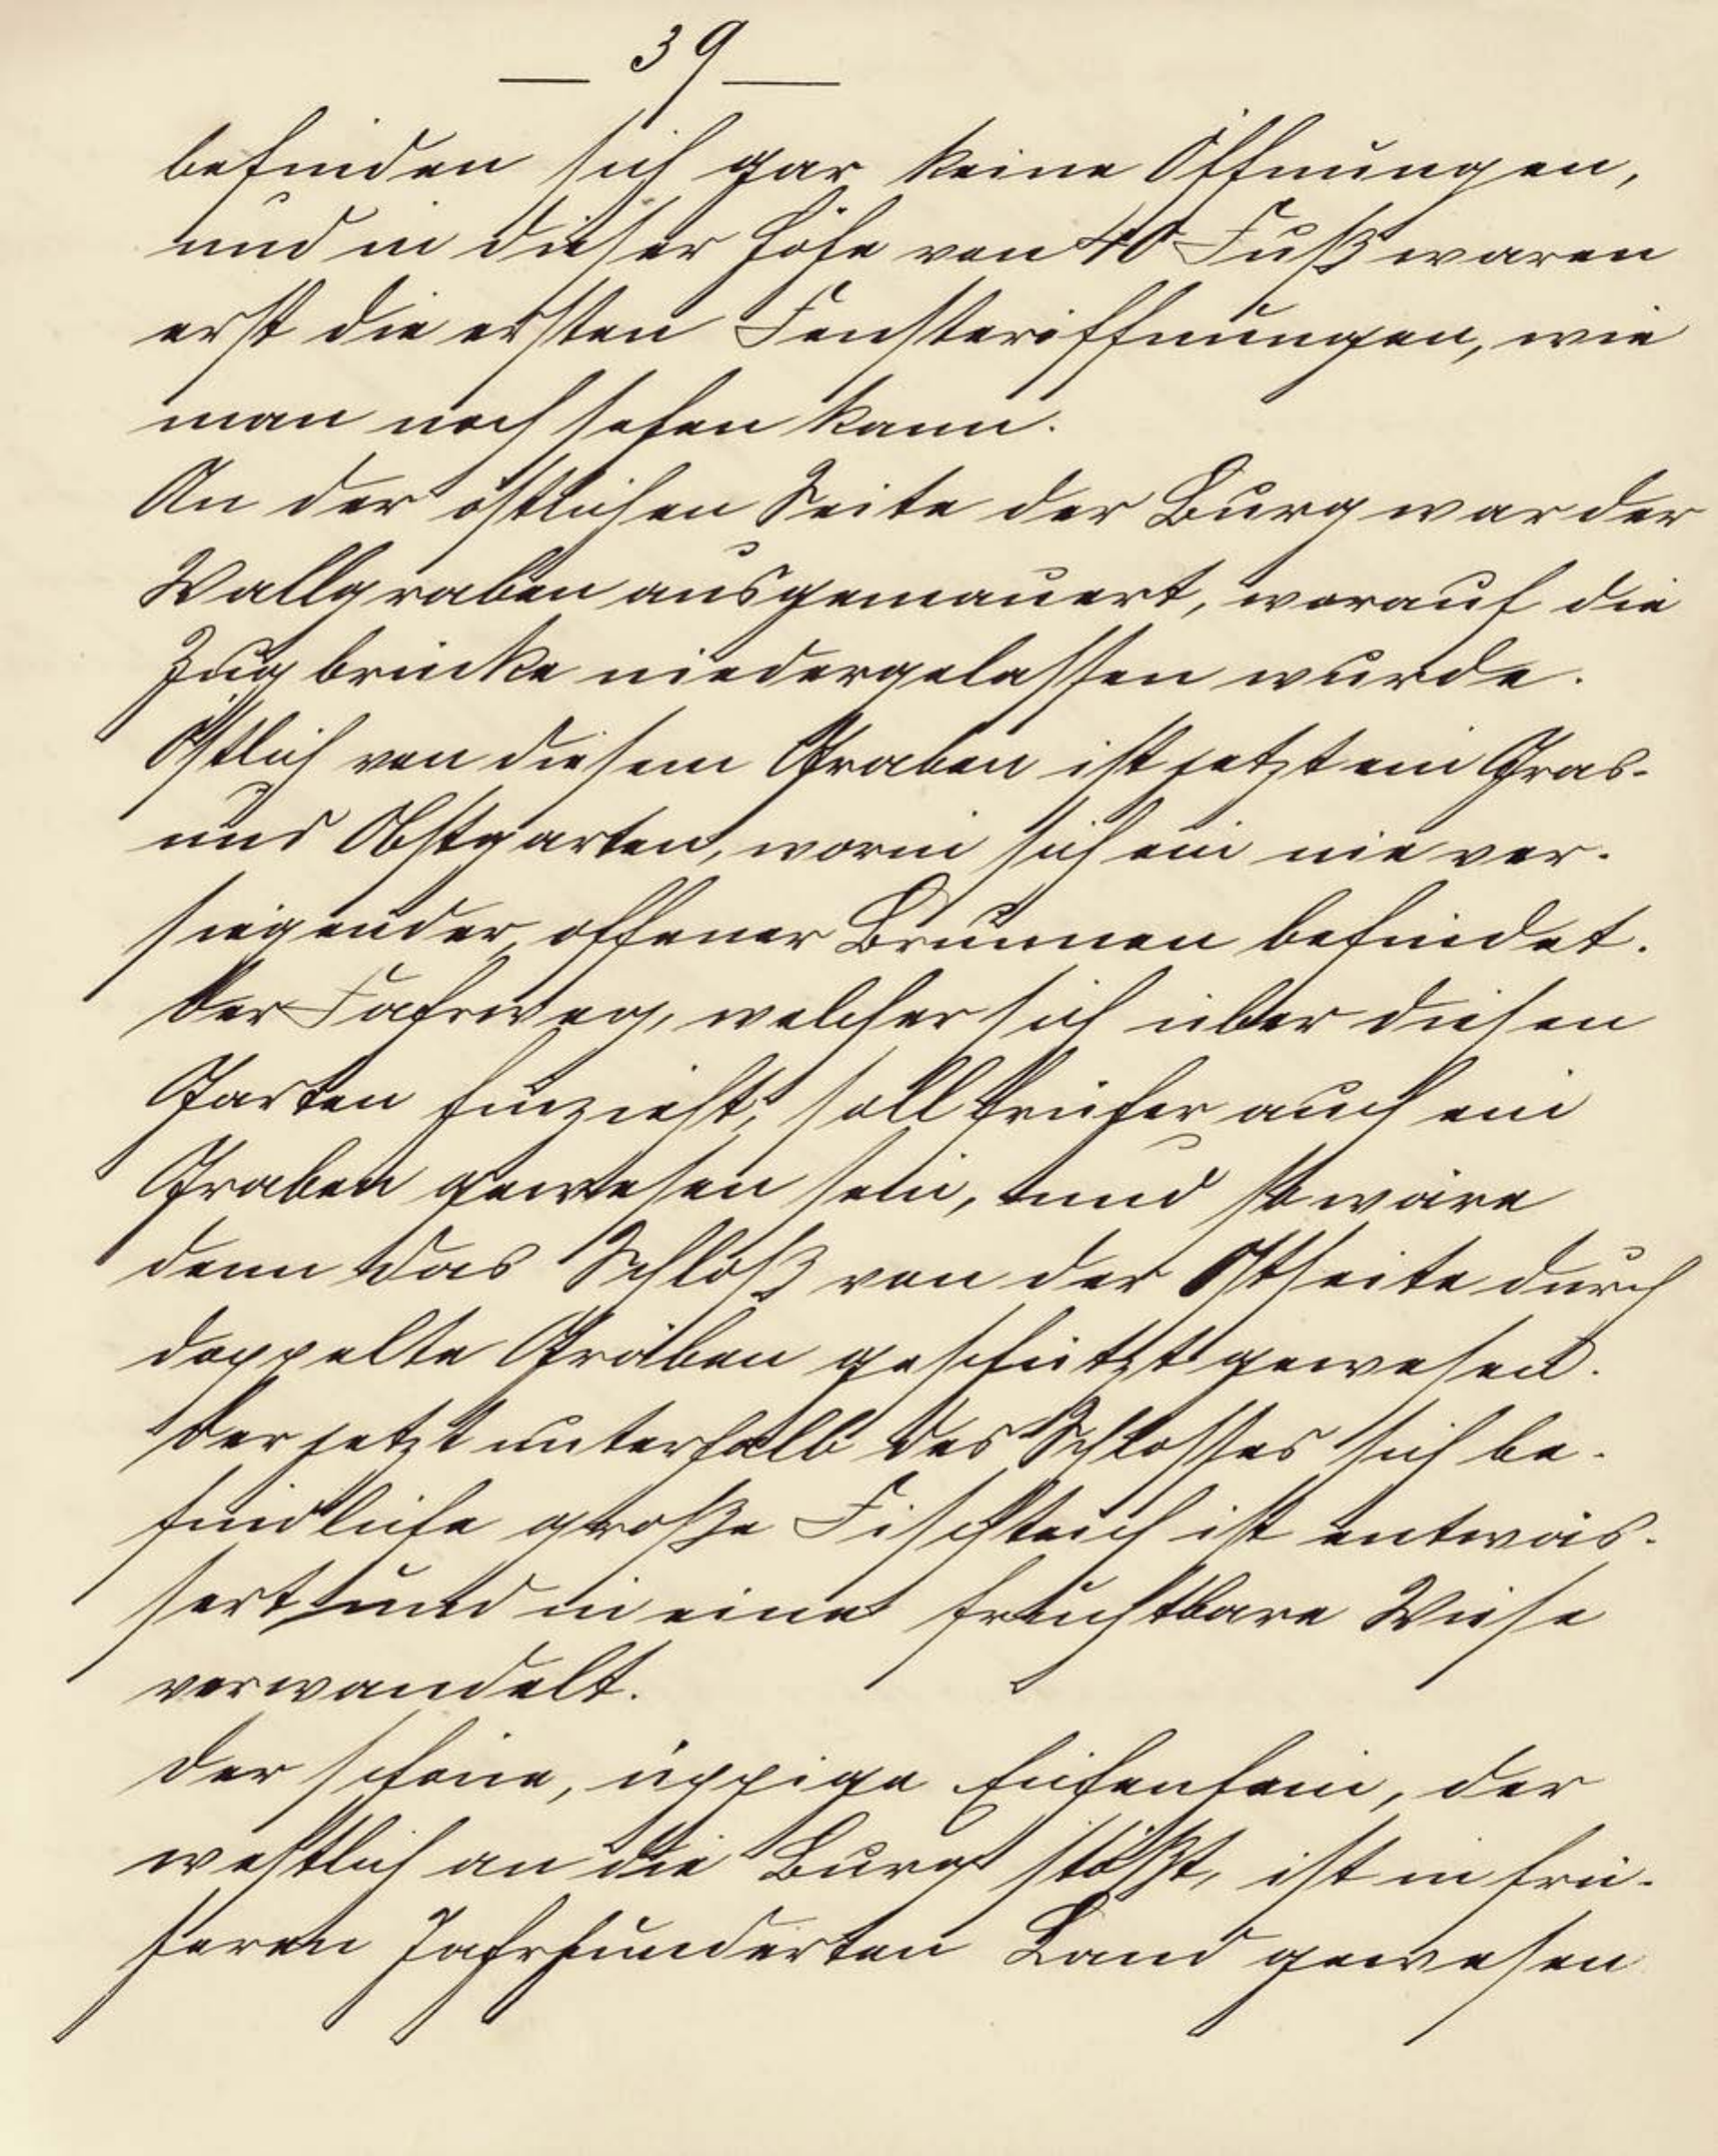 — 39 —
befinden sich gar keine Öffnungen,
und in dieser Höhe von 40 Fuß waren
erst die ersten Fensteröffnungen, wie
man noch sehen kann.
An der östlichen Seite der Burg war der
Wallgraben ausgemauert, worauf die
Zugbrücke niedergelassen wurde.
Östlich von diesem Graben ist jetzt ein Gras-
und Obstgarten, worin sich ein nie ver-
siegender, offener Brunnen befindet.
Der Fahrweg, welcher sich über diesen
Garten hinzieht, soll früher auch ein
Graben gewesen sein, und so wäre
denn das Schloß von der Ostseite durch
doppelte Gräben geschützt gewesen.
Der jetzt unterhalb des Schlosses sich be-
findliche große Fischteich ist entwäs-
sert und in eine fruchtbare Wiese
verwandelt.
Der schöne, üppige Eichenhain, der
westlich an die Burg stößt, ist in frü-
heren Jahrhunderten Land gewesen